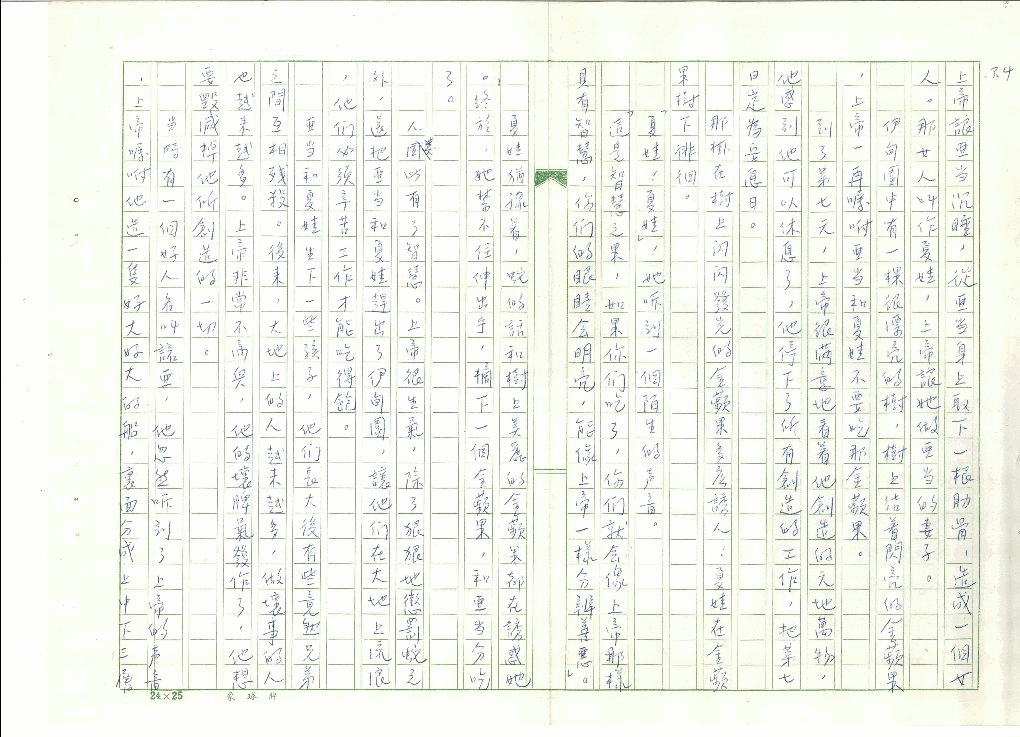 P.4
上帝讓亞当沉睡，從亞当身上取下一根肋骨，造成一個女
人。那女人叫作夏娃，上帝讓她做亞当的妻子。
伊甸園中有一棵很漂亮的樹，樹上結着閃亮的金蘋果
，上帝一再囑咐亞当和夏娃不要吃那金蘋果。
到了第七天，上帝很滿意地看着他創造的天地萬物，
他感到他可以休息了，他停下了所有創造的工作，把第七
日定為安息日。
那掛在樹上閃闪發光的金蘋果多麼誘人：夏娃在金蘋
果樹下徘徊。
「夏娃！夏娃！」她听到一個陌生的声音。
「這是智慧之果，如果你们吃了，你們就会像上帝那樣
具有智慧，你们的眼睛会明亮，能像上帝一樣分辨善惡」。
夏娃猶豫着，蛇的話和樹上美麗的金蘋果都在誘惑她
。終於，她禁不住伸出手，摘下一個金蘋果，和亞当分吃
了。
人類以有了智慧。上帝很生氣，除了狠狠地懲罰蛇之
外，還把亞当和夏娃趕出了伊甸園，讓他们在大地上流浪
，他們必須辛苦工作才能吃得飽。
亞当和夏娃生下一些孩子，他們長大後有些竟然兄弟
之間互相残殺。後来，大地上的人越来越多，做壞事的人
也越来越多。上帝非常不高興，他的壞脾氣發作了，他想
要毀滅掉他所創造的一切。
当時有一個好人名叫諾亞，他忽然听到了上帝的声音
，上帝囑咐他造一隻好大好大的船，裏面分成上中下三層
24×25